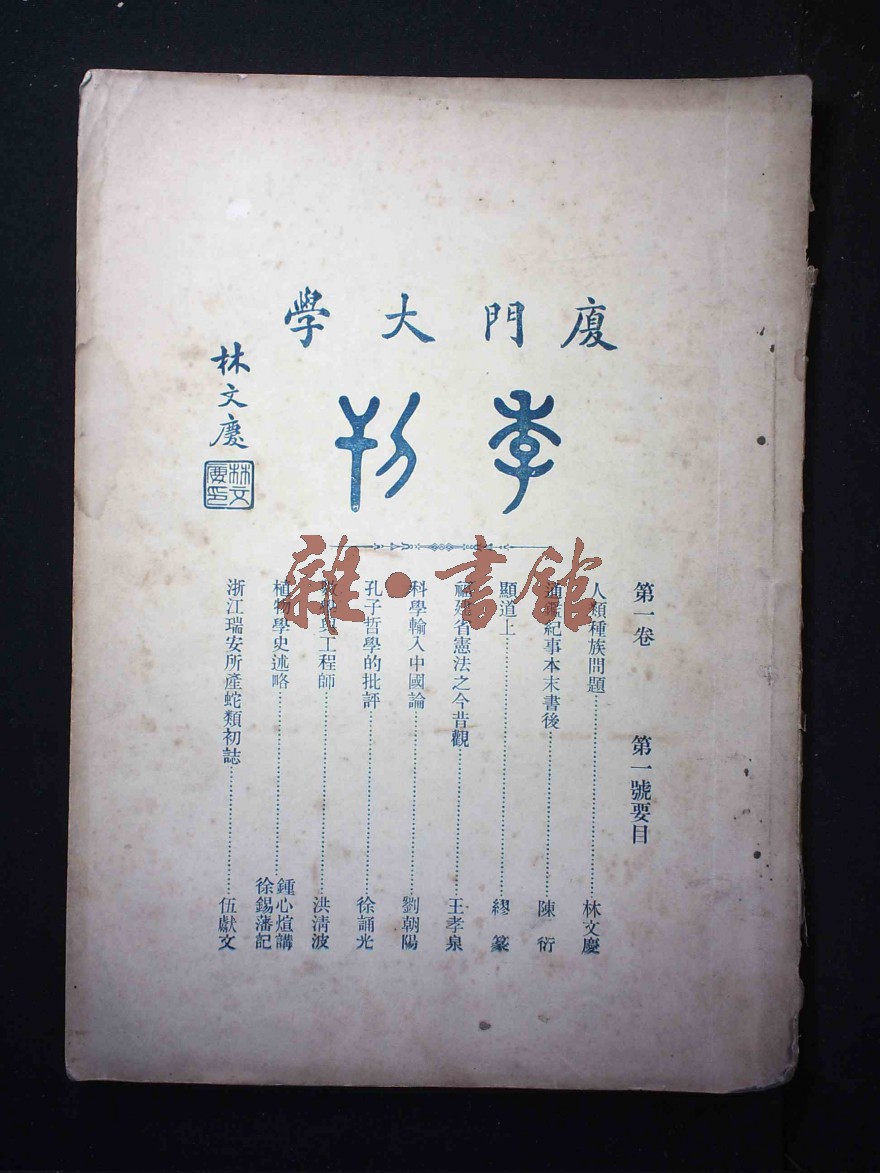 廈門大學
季刊
林文慶
林文慶印
雜·書館
第一卷 第一號要目
人類種族問題 林文慶
通鑑紀事本末書後 陳衍
顯道上 繆篆
福建省憲法之今昔觀 王孝泉
科學輸入中國論 劉朝陽
孔子哲學的批評 徐誦光
工程師 洪清波
植物學史述略 鍾心煊講 徐錫藩記
浙江瑞安所產蛇類初誌 伍獻文